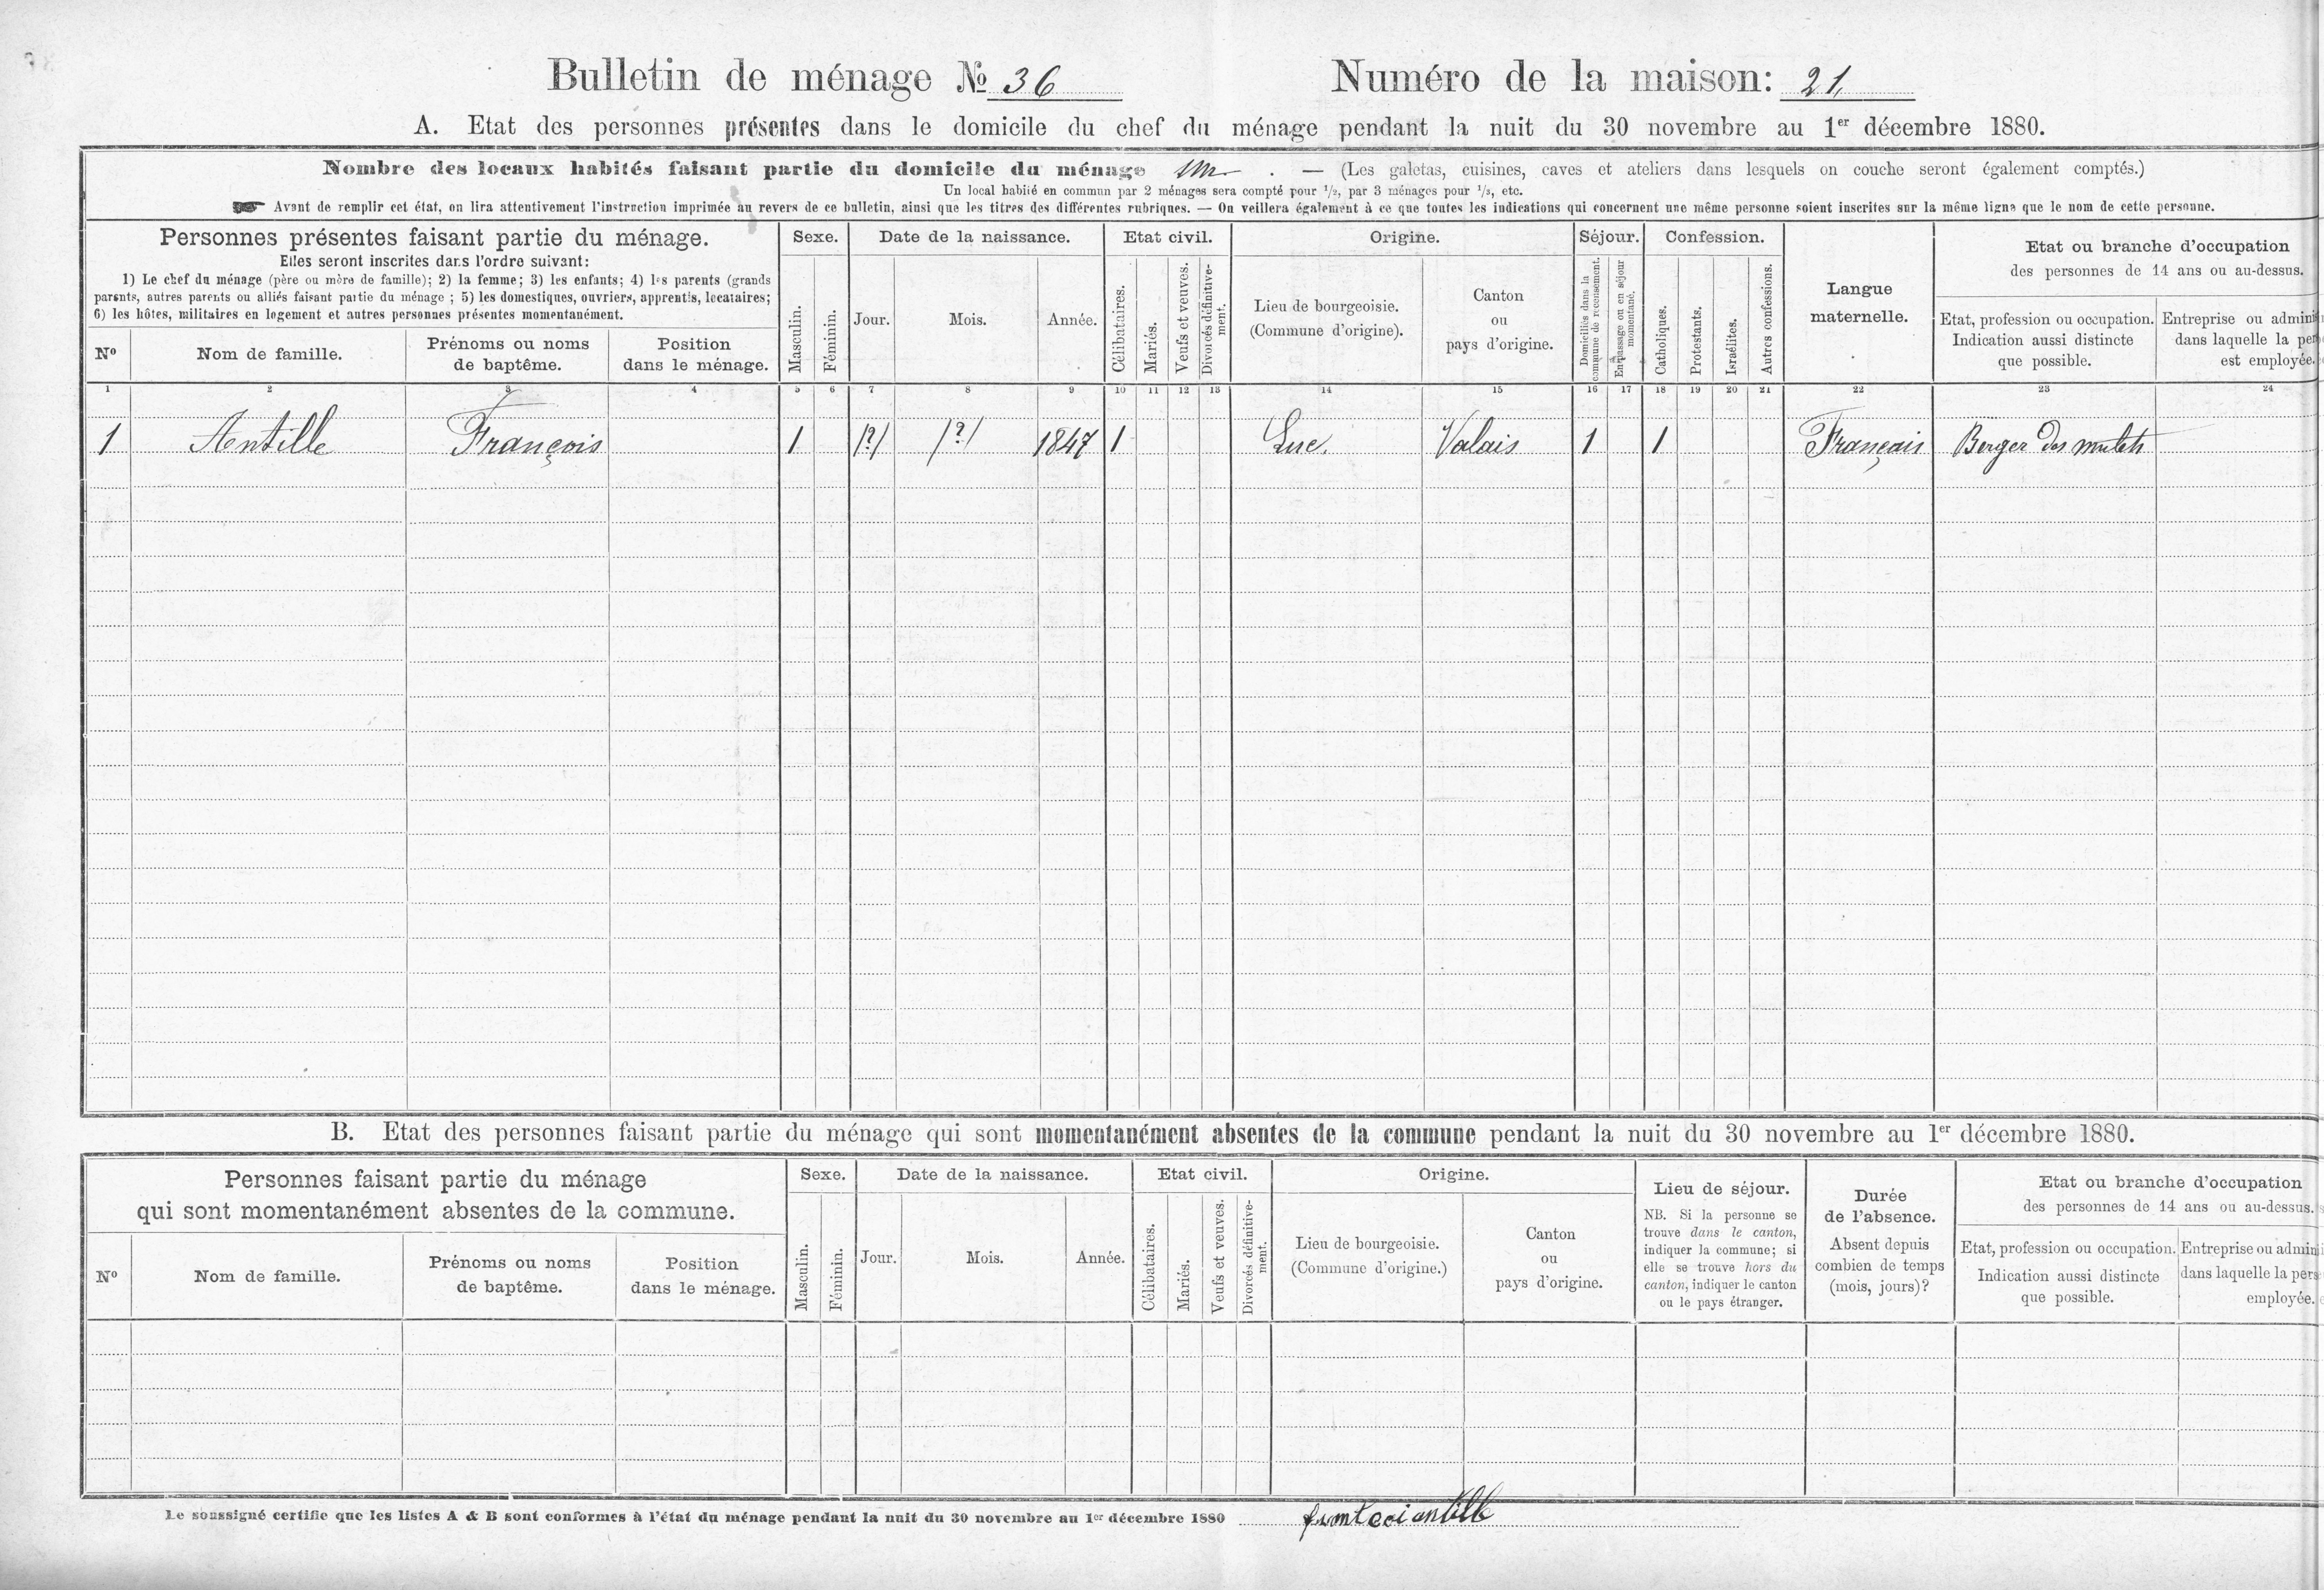 Bulletin de ménage № 36
Numéro de la maison: 21
A. Etat des personnes présentes dans le domicile du chef du ménage pendant la nuit du 30 novembre au 1er décembre 1880.
Nombre des locaux habités faisant partie du domicile du ménage un . — (Les galetas, cuisines, caves et ateliers dans lesquels on couche seront également comptés.)
Un local habité en commun par 2 ménages sera compté pour 1/2, par 3 ménages pour 1/3, etc.
Avant de remplir cet état, on lira attentivement l'instruction imprimée au revers de ce bulletin, ainsi que les titres des différentes rubriques. — On veillera également à ce que toutes les indications qui concernent une même personne soient inscrites sur la même ligne que le nom de cette personne.
Personnes présentes faisant partie du ménage.
Elles seront inscrites dans l'ordre suivant:
1) Le chef du ménage (père ou mère de famille); 2) la femme; 3) les enfants; 4) les parents (grands
parents, autres parents ou alliés faisant partie du ménage ; 5) les domestiques, ouvriers, apprentis, locataires;
6) les hôtes, militaires en logement et autres personnes présentes momentanément.
No
Nom de famille.
Prénoms ou noms
de baptême.
Position
dans le ménage.
Sexe.
Masculin.
Féminin.
Date de la naissance.
Jour.
Mois.
Année.
Etat civil.
Célibataires.
Mariés.
Veufs et veuves.
Divorcés définitive-
ment.
Origine.
Lieu de bourgeoisie.
(Commune d'origine).
Canton
ou
pays d'origine.
Séjour.
Domiciliés dans la
commune de recensement.
En passage ou en séjour
momentané.
Confession.
Catholiques.
Protestants.
Israélites.
Autres confessions.
Langue
maternelle.
Etat ou branche d'occupation
des personnes de 14 ans ou au-dessus.
Etat, profession ou occupation.
Indication aussi distincte
que possible.
Entreprise ou admini
dans laquelle la per
est employée.
1 2 3 4 5 6 7 8 9 10 11 12 13 14 15 16 17 18 19 20 21 22 23 24
1 Antille François 1 /?/ /?/ 1847 1 Luc. Valais 1 1 Français Berger des mulets
B. Etat des personnes faisant partie du ménage qui sont momentanément absentes de la commune pendant la nuit du 30 novembre au 1er décembre 1880.
Personnes faisant partie du ménage
qui sont momentanément absentes de la commune.
No
Nom de famille.
Prénoms ou noms
de baptême.
Position
dans le ménage.
Sexe.
Masculin.
Féminin.
Date de la naissance.
Jour.
Mois.
Année.
Etat civil.
Célibataires.
Mariés.
Veufs et veuves.
Divorcés définitive-
ment.
Origine.
Lieu de bourgeoisie.
(Commune d'origine.)
Canton
ou
pays d'origine.
Lieu de séjour.
NB. Si la personne se
trouve dans le canton,
indiquer la commune; si
elle se trouve hors du
canton, indiquer le canton
ou le pays étranger.
Durée
de l'absence.
Absent depuis
combien de temps
(mois, jours)?
Etat ou branche d'occupation
des personnes de 14 ans ou au-dessus.
Etat, profession ou occupation.
Indication aussi distincte
que possible.
Entreprise ou admin
dans laquelle la pers
employée.
Le soussigné certifie que les listes A & B sont conformes à l'état du ménage pendant la nuit du 30 novembre au 1er décembre 1880
antille